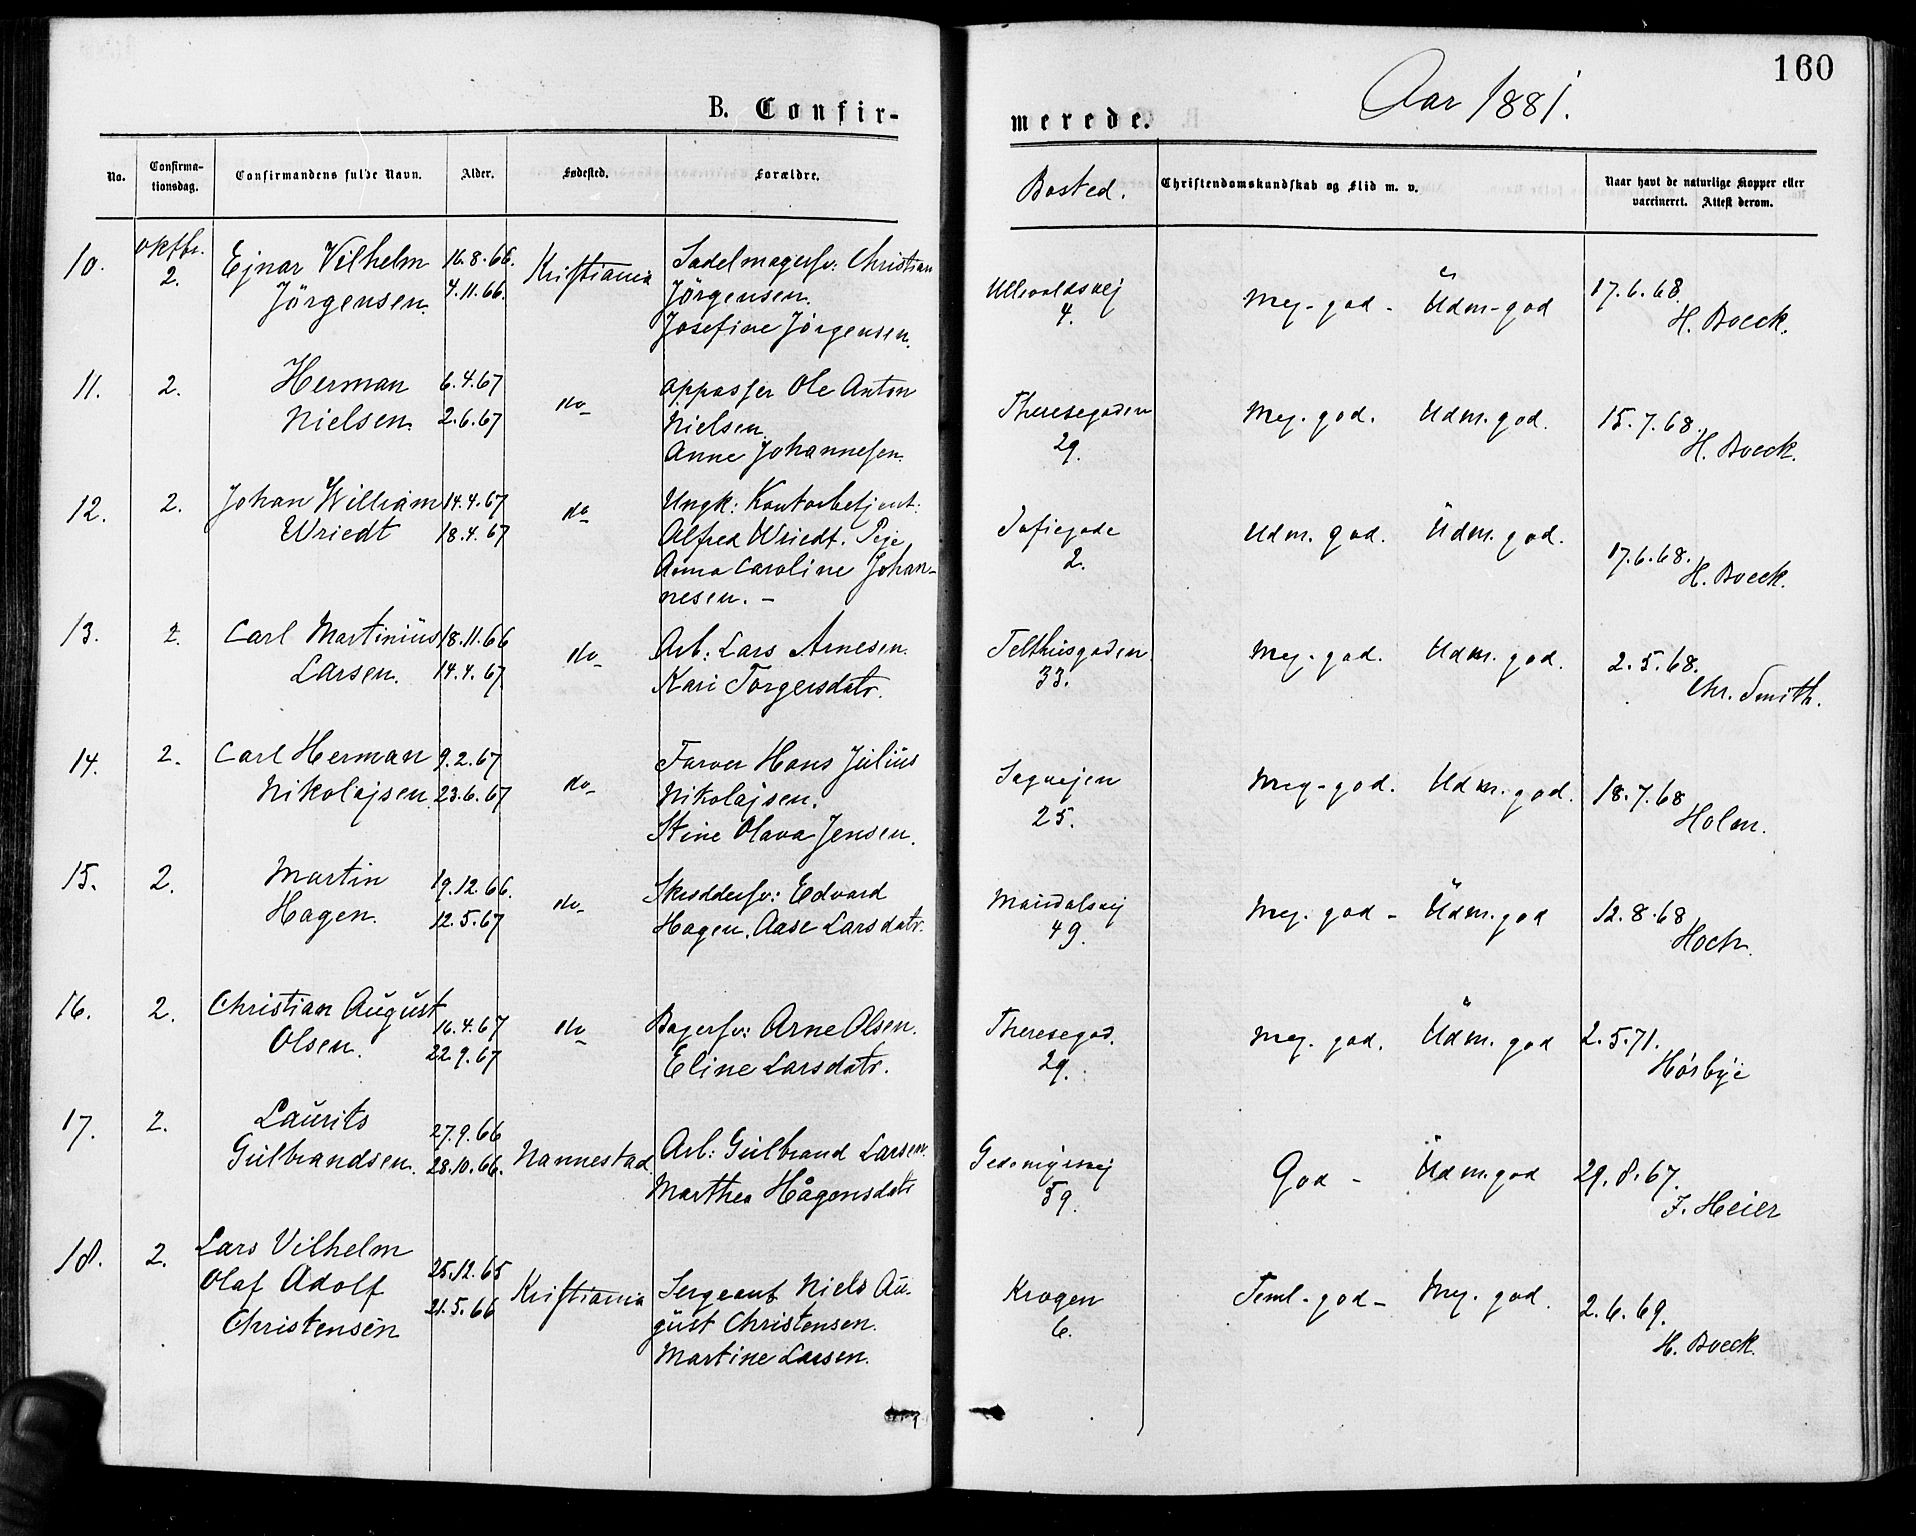 160
B. Confir-
merede.
Aar 1881.
No.
Confirma-
tionsdag.
Confirmandens fulde Navn.
Alder.
Fødested.
Forældre.
Bosted.
Christendomskundskab og Flid m. v.
Naar havt de naturlige Kopper eller
vaccineret. Attest derom.
10. oktbr. 2. Ejnar Vilhelm Jörgensen. 16.8.66. 4.11.66. Kristiania
Sadelmagersv: Christian
Jörgensen.
Josefine Jörgensen.
Ullevoldsvej
4.
Meg-god - Üdm-god
17.6.68.
H. Boeck.
11. 2. Herman Nielsen. 6.4.67 2.6.67 do
Oppasser Ole Anton
Nielsen.
Anne Johannesen.
Theresegaden
29.
Meg. god. Üdm. god.
15.7.68.
H. Boeck.
12. 2. Johan William Wriedt 14.4.67 18.4.67 do
Ungk: Kontorbetjent:
Alfred Wriedt. Pige
Anna Caroline Johan-
nesen. -
Sofiegade
2.
Udm. god. Üdm. god.
17.6.68.
H. Boeck.
13. 2. Carl Martinius Larsen. 18.11.66 14.4.67 do
Arb: Lars Arnesen.
Kari Torgersdatr.
Telthusgaden.
33.
Meg. god. Üdm. god.
2.5.68.
Chr. Smith.
14. 2. Carl Herman Nikolajsen. 9.2.67 23.6.67 do
Farver Hans Julius
Nikolajsen.
Stine Olava Jensen.
Sagvejen
25.
Meg-god. Üdm. god.
18.7.68
Holm.
15. 2. Martin Hagen. 19.12.66. 12.5.67 do
Skreddersv: Edvard
Hagen. Aase Larsdatr.
Maridalsvej
49.
Meg. god - Üdm. god
12.8.68
Hoch.
16. 2. Christian August Olsen. 16.4.67 22.9.67 do
Bagersv: Arne Olsen.
Eline Larsdatr.
Theresegad.
29.
Meg. god. Üdm. god
2.5.71.
Hørbye
17. 2. Laurits Gulbrandsen. 27.9.66 28.10.66. Nannestad.
Arb: Gulbrand Larsen.
Marthea Hågensdatr
59.
God - Üdm. god
29.8.67.
J. Heier
18. 2. Lars Vilhelm Olaf Adolf Christensen 25.12.65 21.5.66 Kristiania
Sergeant Niels Au-
gust Christensen.
Martine Larsen.
Krogen
6.
Teml-god - Meg. god.
2.6.69.
H. Boeck.